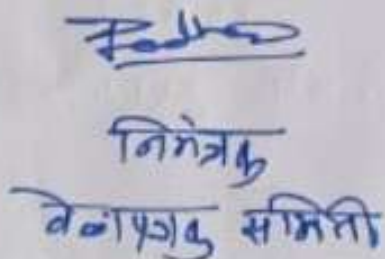 निमंत्रक
वेळापत्रक समिती